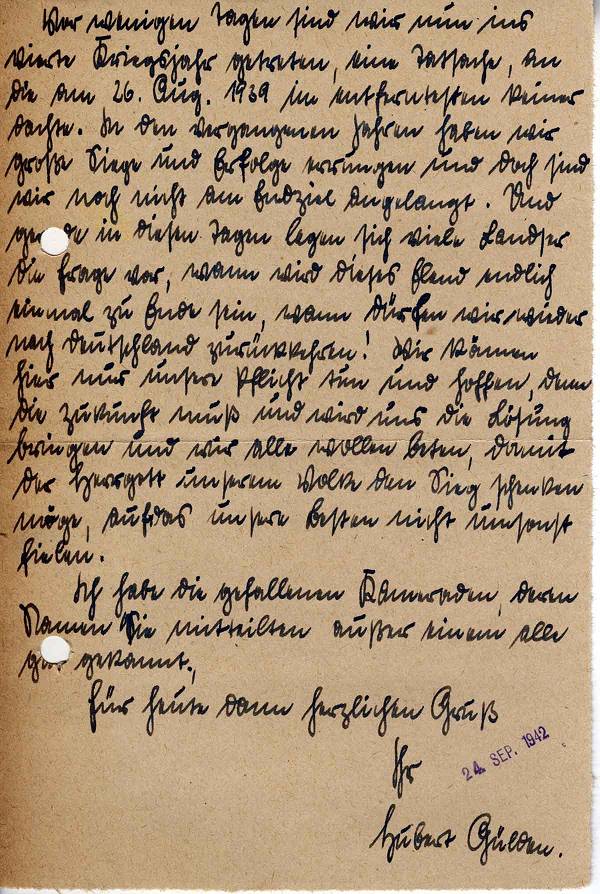 Vor wenigen Tagen sind wir nun ins
vierte Kriegsjahr getreten, eine Tatsache, an
die am 26. Aug. 1939 im entferntesten keiner
dachte. In den vergangenen Jahren haben wir
große Siege und Erfolge errungen und doch sind
wir noch nicht am Endziel angelangt. Und
gerade in diesen Tagen legen sich viele Landser
die Frage vor, wann wird dieses Elend endlich
einmal zu Ende sein, wann dürfen wir wieder
nach Deutschland zurückkehren! Wir können
hier nur unsere Pflicht tun und hoffen, denn
die Zukunft muß und wird uns die Lösung
bringen und wir alle wollen beten, damit
der Herrgott unserem Volke den Sieg schenken
möge, aufdas unsere Besten nicht umsonst
fielen.
Ich habe die gefallenen Kameraden, deren
Namen Sie mitteilten außer einem alle
gut gekannt.
Für heute dann herzlichen Gruß
Ihr
24. SEP. 1942
Hubert Gülden.